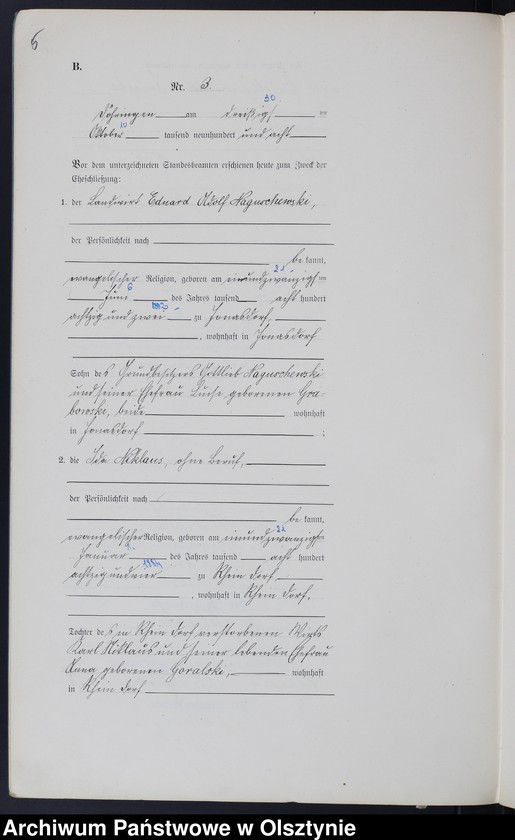 6
B.
Nr. 3.
30
Döhringen am dreißigsten
10
Oktober tausend neunhundert und acht
Vor dem unterzeichneten Standesbeamten erschienen heute zum Zweck der
Eheschließung:
1. der Landwirt Eduard Adolf Naguschewski,
der Persönlichkeit nach
be kannt,
21
evangelischer Religion, geboren am einundzwanzigsten
6
Juni des Jahres tausend acht hundert
achtzig und zwei zu Jonasdorf,
, wohnhaft in Jonasdorf
Sohn des Grundbesitzers Gottlieb Naguschewski
und seiner Ehefrau Luise geborenen Gra-
bowski, beide wohnhaft
in Jonasdorf ;
2. die Ida Niklaus, ohne Beruf,
der Persönlichkeit nach
be kannt,
21
evangelischer Religion, geboren am einundzwanzigsten
1.
Januar des Jahres tausend acht hundert
1884
achtzig und vier zu Rhein Dorf
, wohnhaft in Rhein Dorf.
Tochter des in Rhein Dorf verstorbenen Wirts
Karl Niklaus und seiner lebenden Ehefrau
Anna geborenen Goralski, wohnhaft
in Rhein Dorf
Archiwum Państwowe w Olsztynie